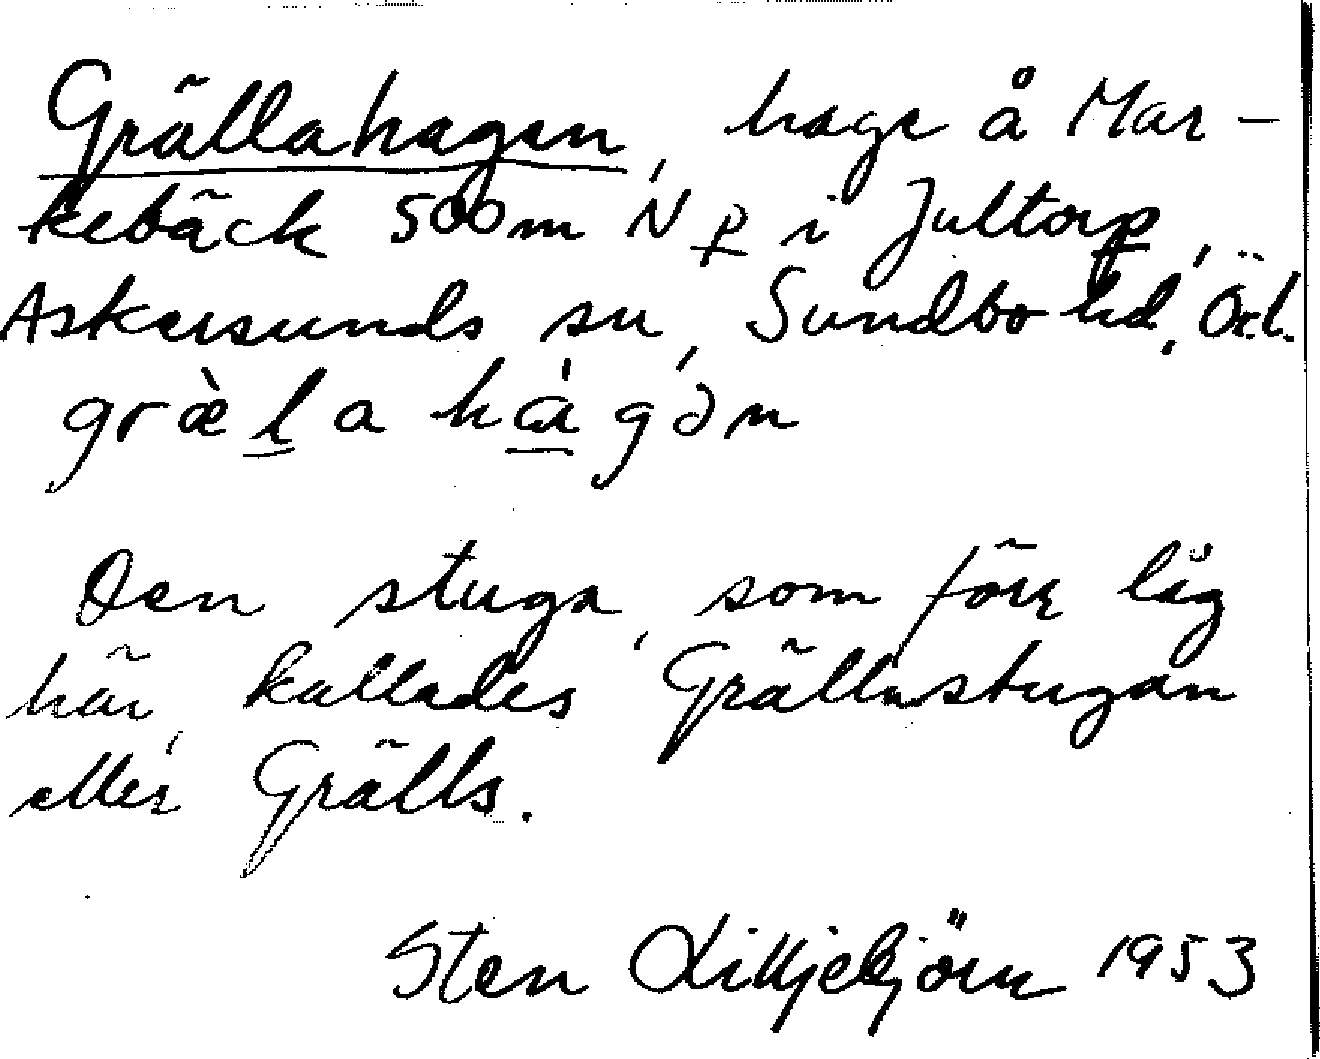 Grällahagen, hage å Mar-
kebäck 500m N p i Jultorp,
Askersunds sn, Sundbo hd, Ör.l.
græ̀la hȧgən
Den stuga, som förr låg
här, kallades Grällastugan
eller Grälls.
Sten Lilljebjörn 1953